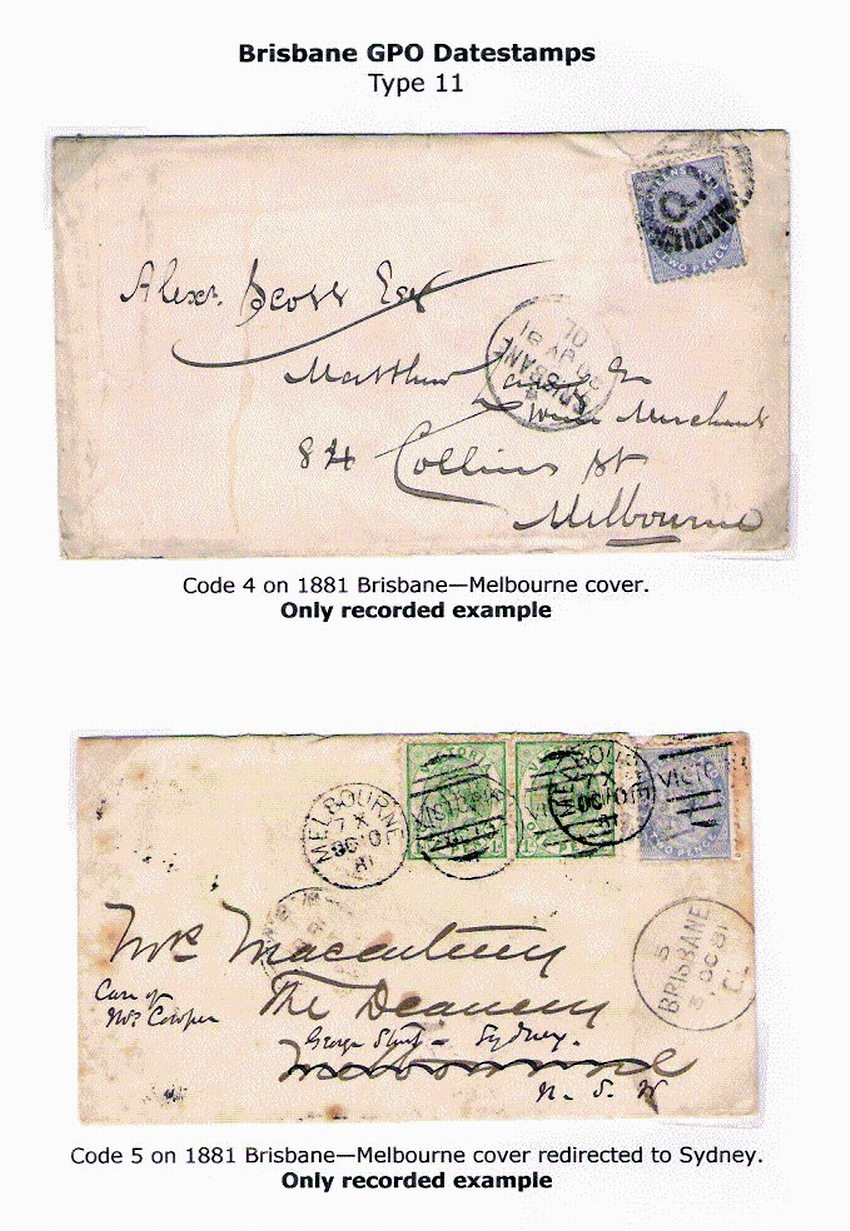 Brisbane GPO Datestamps
Type 11
Q.
TWO PENCE
Alexr. Scott Esq
QL
BRISBANE
4
Matthew
Wine Merchant
84 Collins St
Melbourne
Code 4 on 1881 Brisbane—Melbourne cover.
Only recorded example
MELBOURNE
7 X
OC 10
81
VICTORIA
VICTORIA
MELBOURNE
7 X
OC 10
81
VICTO
TWO PENCE
5
BRISBANE
5 OC 81
QL
Mrs Macartney
Care of
Mrs Cowper
The Deanery
George Street - Sydney.
Melbourne
N. S. W
Code 5 on 1881 Brisbane—Melbourne cover redirected to Sydney.
Only recorded example